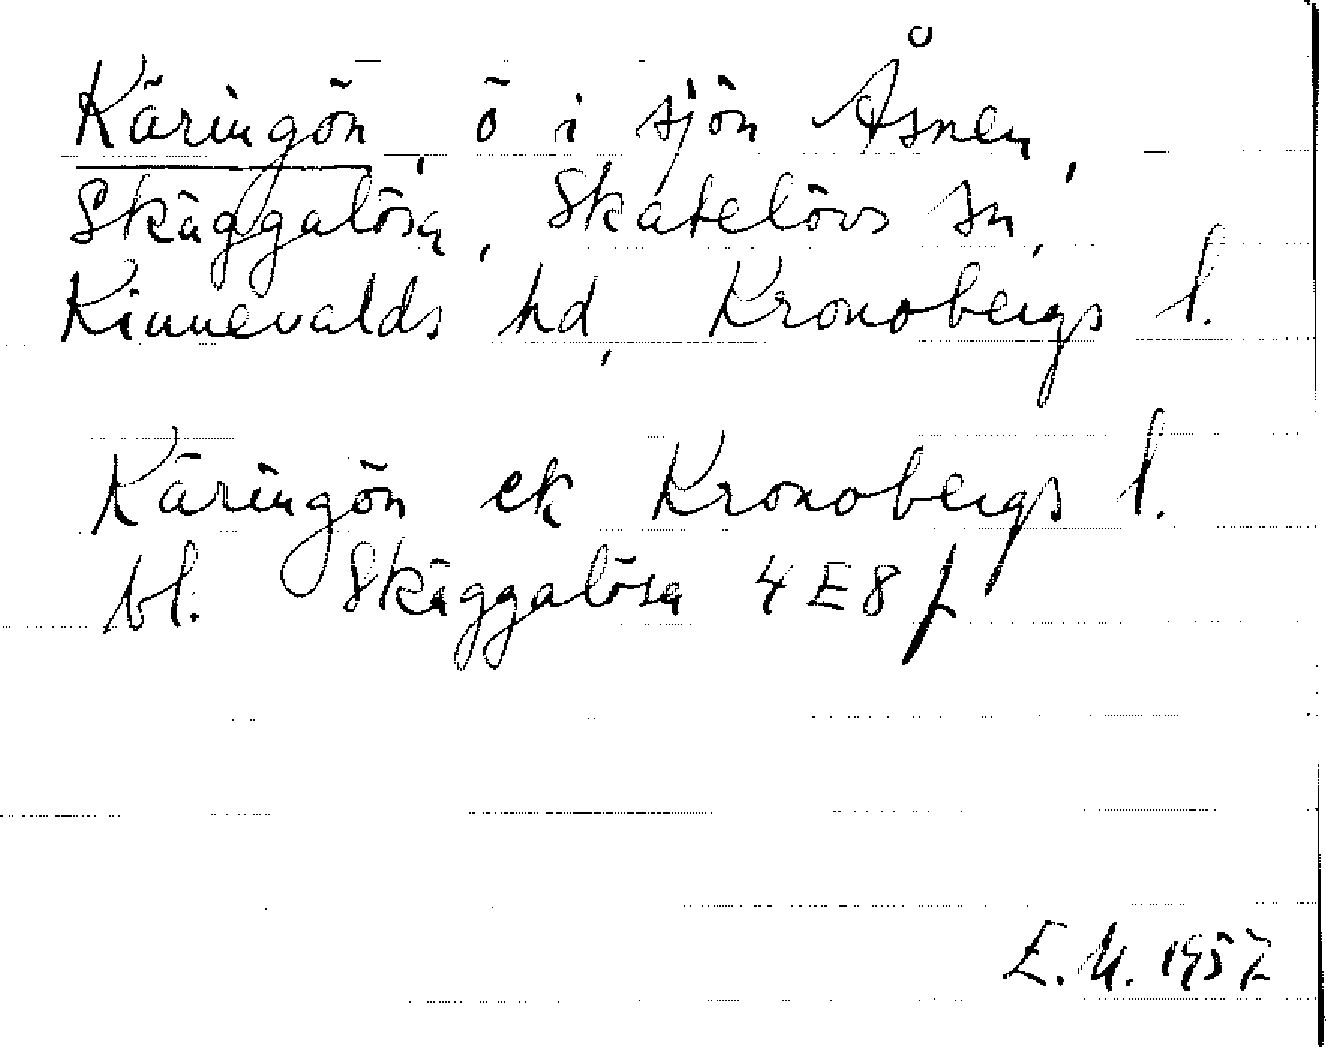 Käringön, ö i sjön Åsnen,
Skäggalösa, Skatelövs sn,
Kinnevalds hd, Kronobergs l.
Käringön ek Kronobergs l.
bl. Skäggalösa 4E8f
E.M. 1957